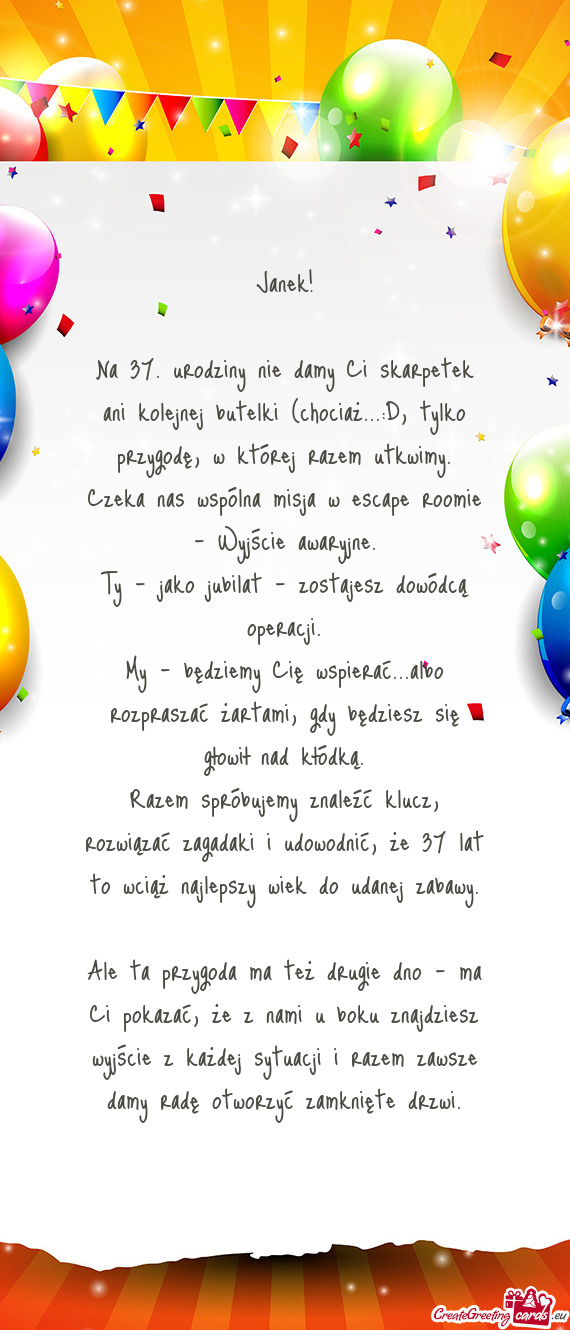 Janek!
Na 37. urodziny nie damy Ci skarpetek
ani kolejnej butelki (chociaż...:D, tylko
przygodę, w której razem utkwimy.
Czeka nas wspólna misja w escape roomie
- Wyjście awaryjne.
Ty - jako jubilat - zostajesz dowódcą
operacji.
My - będziemy Cię wspierać...albo
rozpraszać żartami, gdy będziesz się
głowił nad kłódką.
Razem spróbujemy znaleźć klucz,
rozwiązać zagadaki i udowodnić, że 37 lat
to wciąż najlepszy wiek do udanej zabawy.
Ale ta przygoda ma też drugie dno - ma
Ci pokazać, że z nami u boku znajdziesz
wyjście z każdej sytuacji i razem zawsze
damy radę otworzyć zamknięte drzwi.
CreateGreetingcards.eu